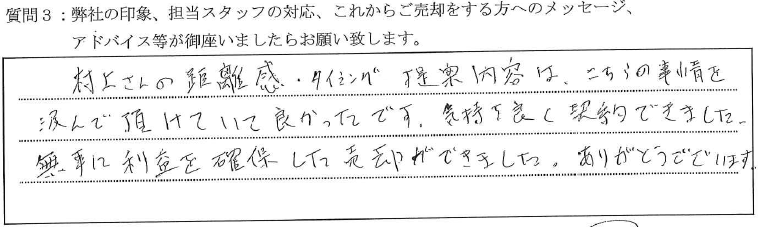 質問3：弊社の印象、担当スタッフの対応、これからご売却をする方へのメッセージ、
アドバイス等が御座いましたらお願い致します。
村上さんの距離感・タイミング 提案内容は、こちらの事情を
汲んで頂けていて良かったです。気持ち良く契約できました。
無事に利益を確保した売却ができました。ありがとうございます。